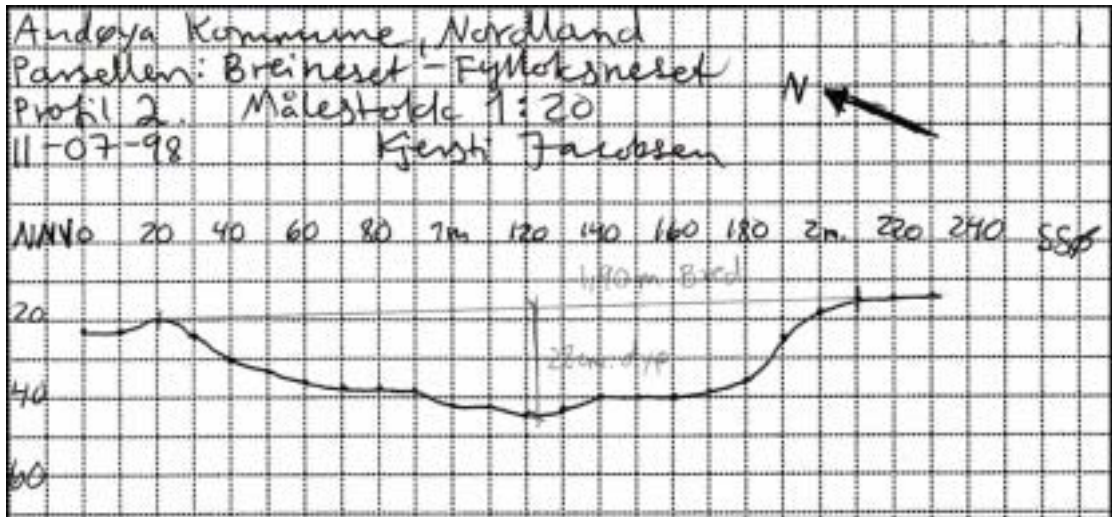 Andøya Kommune, Nordland
Parsellen: Breineset - Fylloksneset
Profil 2. Målestokk 1:20
N
11-07-98 Kjersti Jacobsen
NNV 0 20 40 60 80 1m 120 140 160 180 2m. 220 240 SSØ
1,90 m. Bred
20
22 cm. dyp
40
60